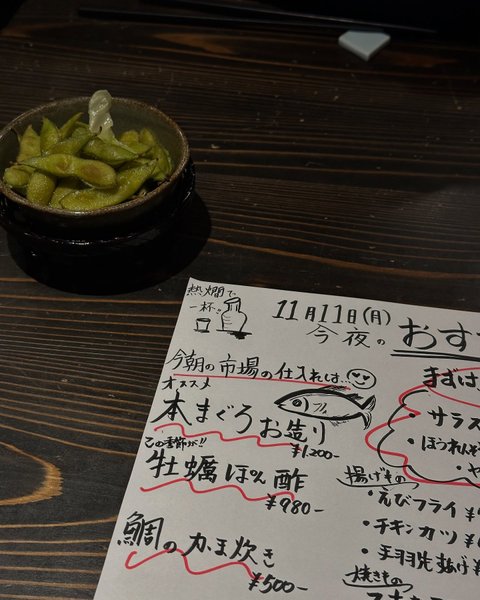 熱燗で
一杯!!
11月11日(月)
今夜の おす
今朝の市場の仕入れは…
オススメ
本まぐろ お造り
¥1200-
この季節が!!
牡蠣ぽん酢
¥980-
鯛のかま炊き
¥500-
まずは
・サラス
・ほうれんそ
揚げもの
・えびフライ ¥
・チキンカツ ¥
・手羽先揚げ ¥
焼きもの